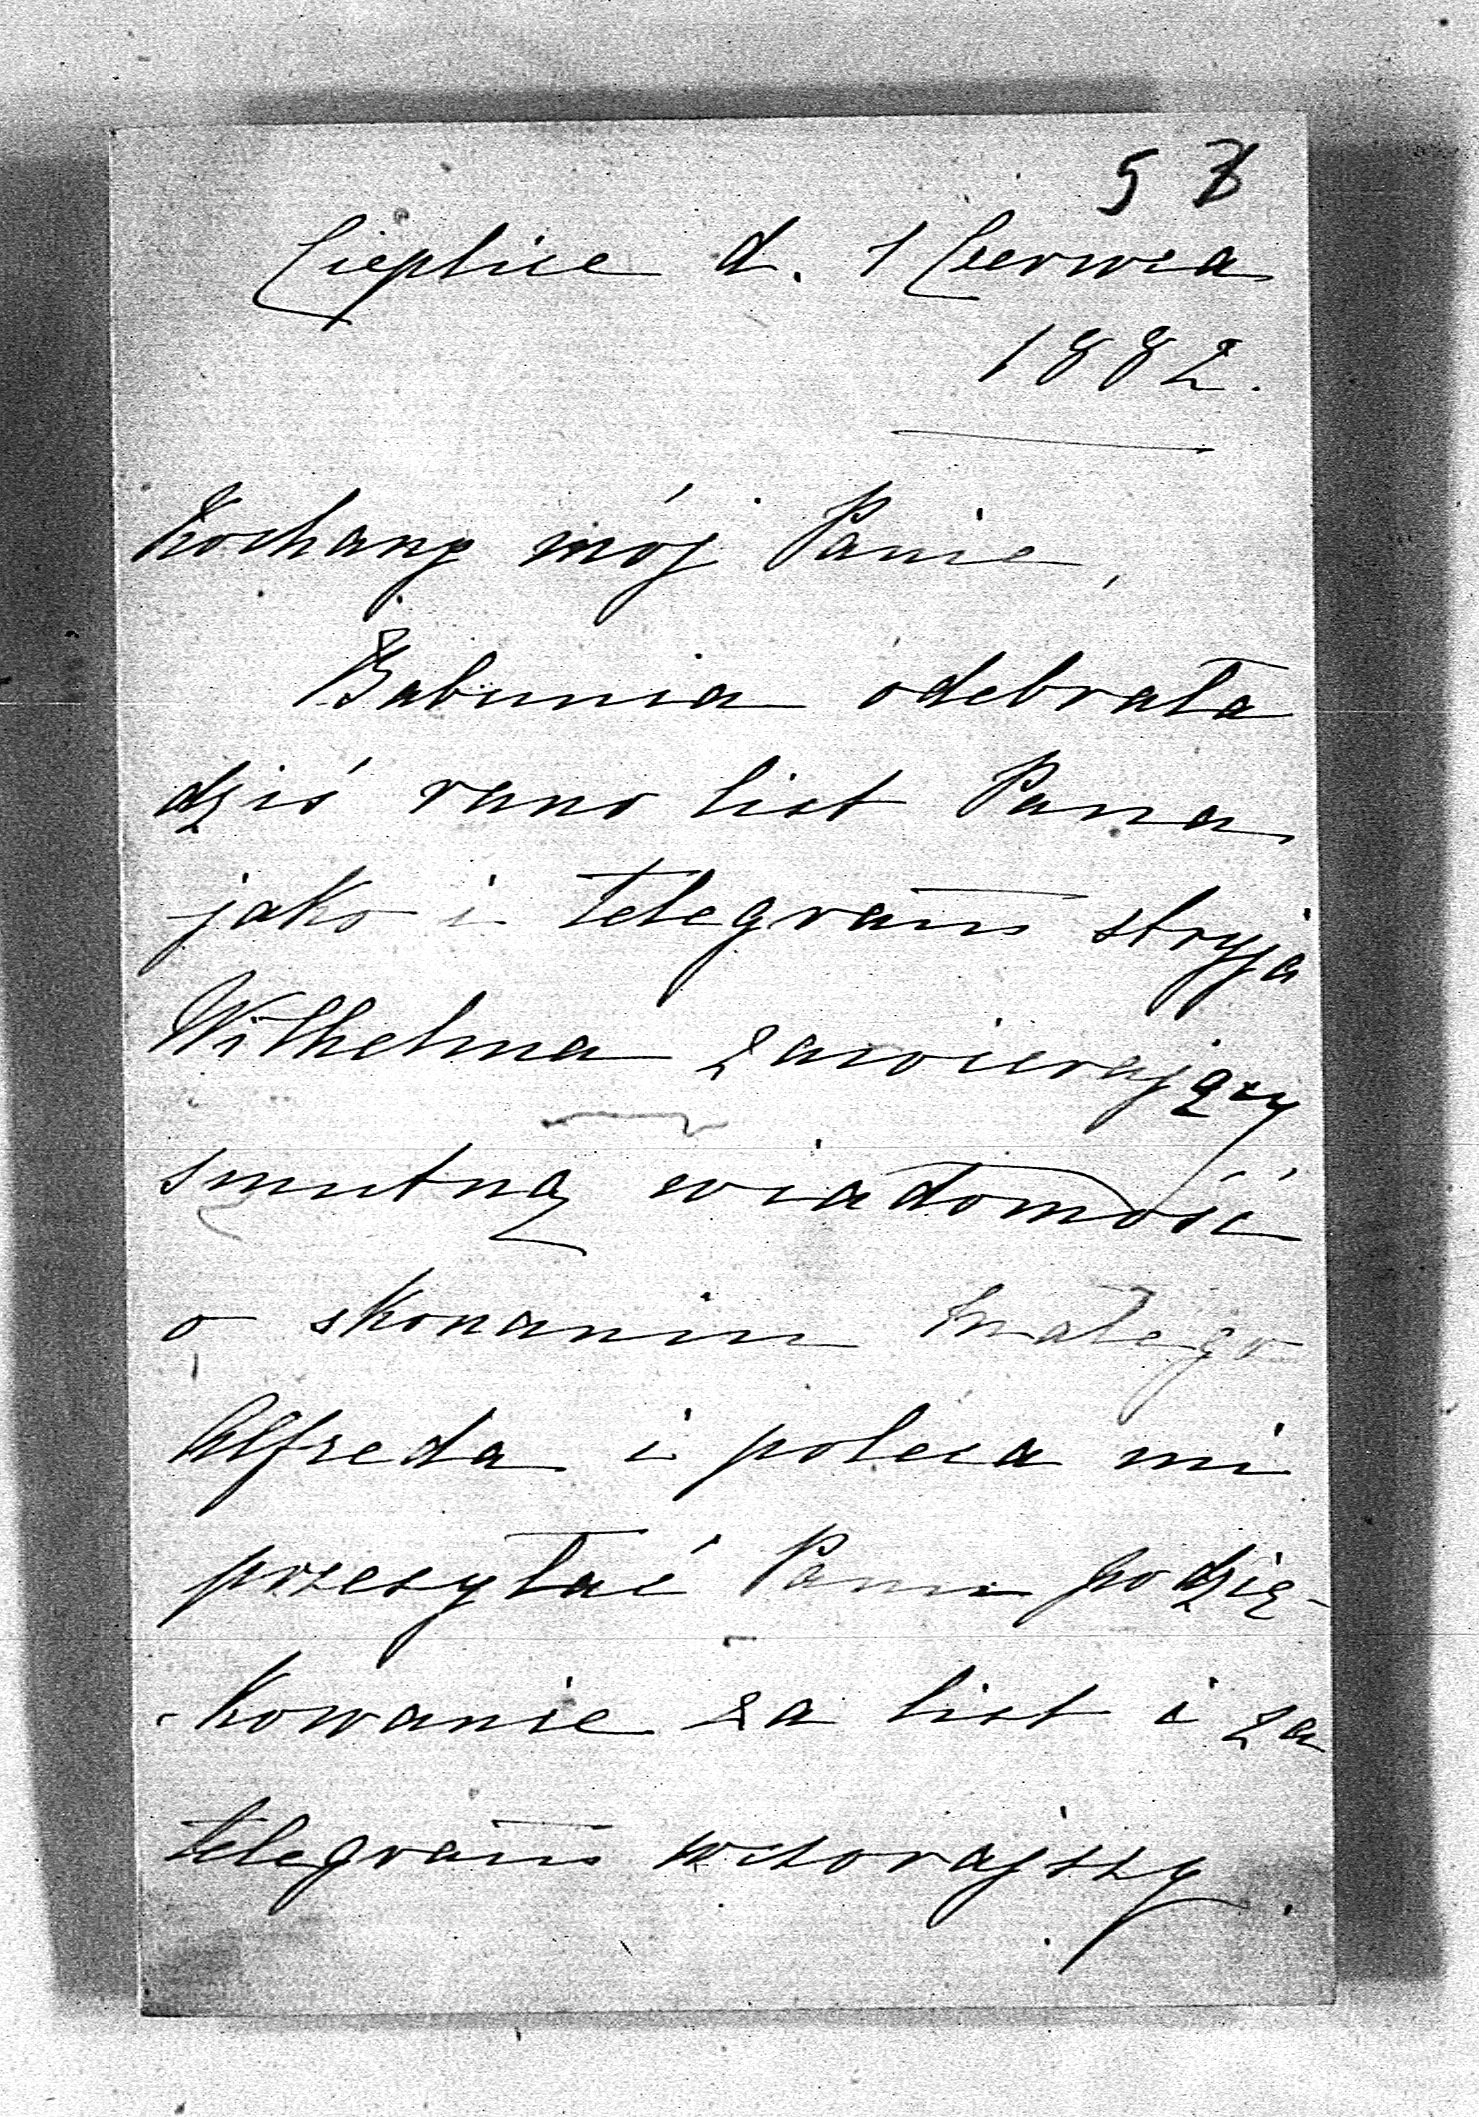 5
Cieplice d. 1 Czerwca
1882.
Kochany mój Panie,
Babunia odebrała
dziś rano list Pana
jako i telegram stryja
Wilhelma zawierający
smutną wiadomość
o skonaniu małego
Alfreda i poleca mi
przesyłać Panu podzię-
-kowanie za list i za
telegram wczorajszy.